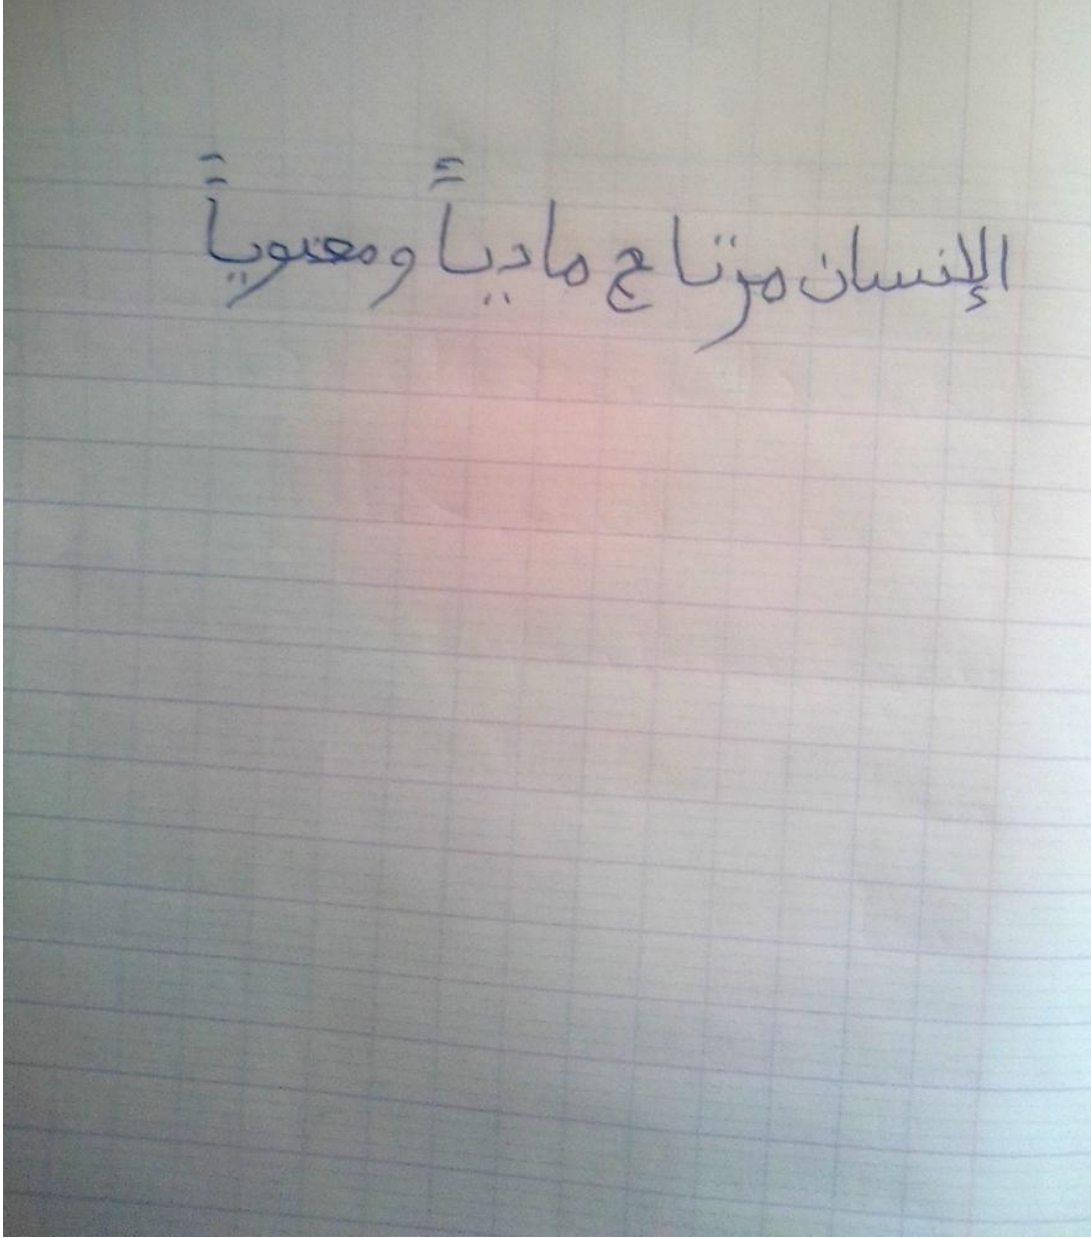 الإنسان مرتاح مادياً ومعنوياً